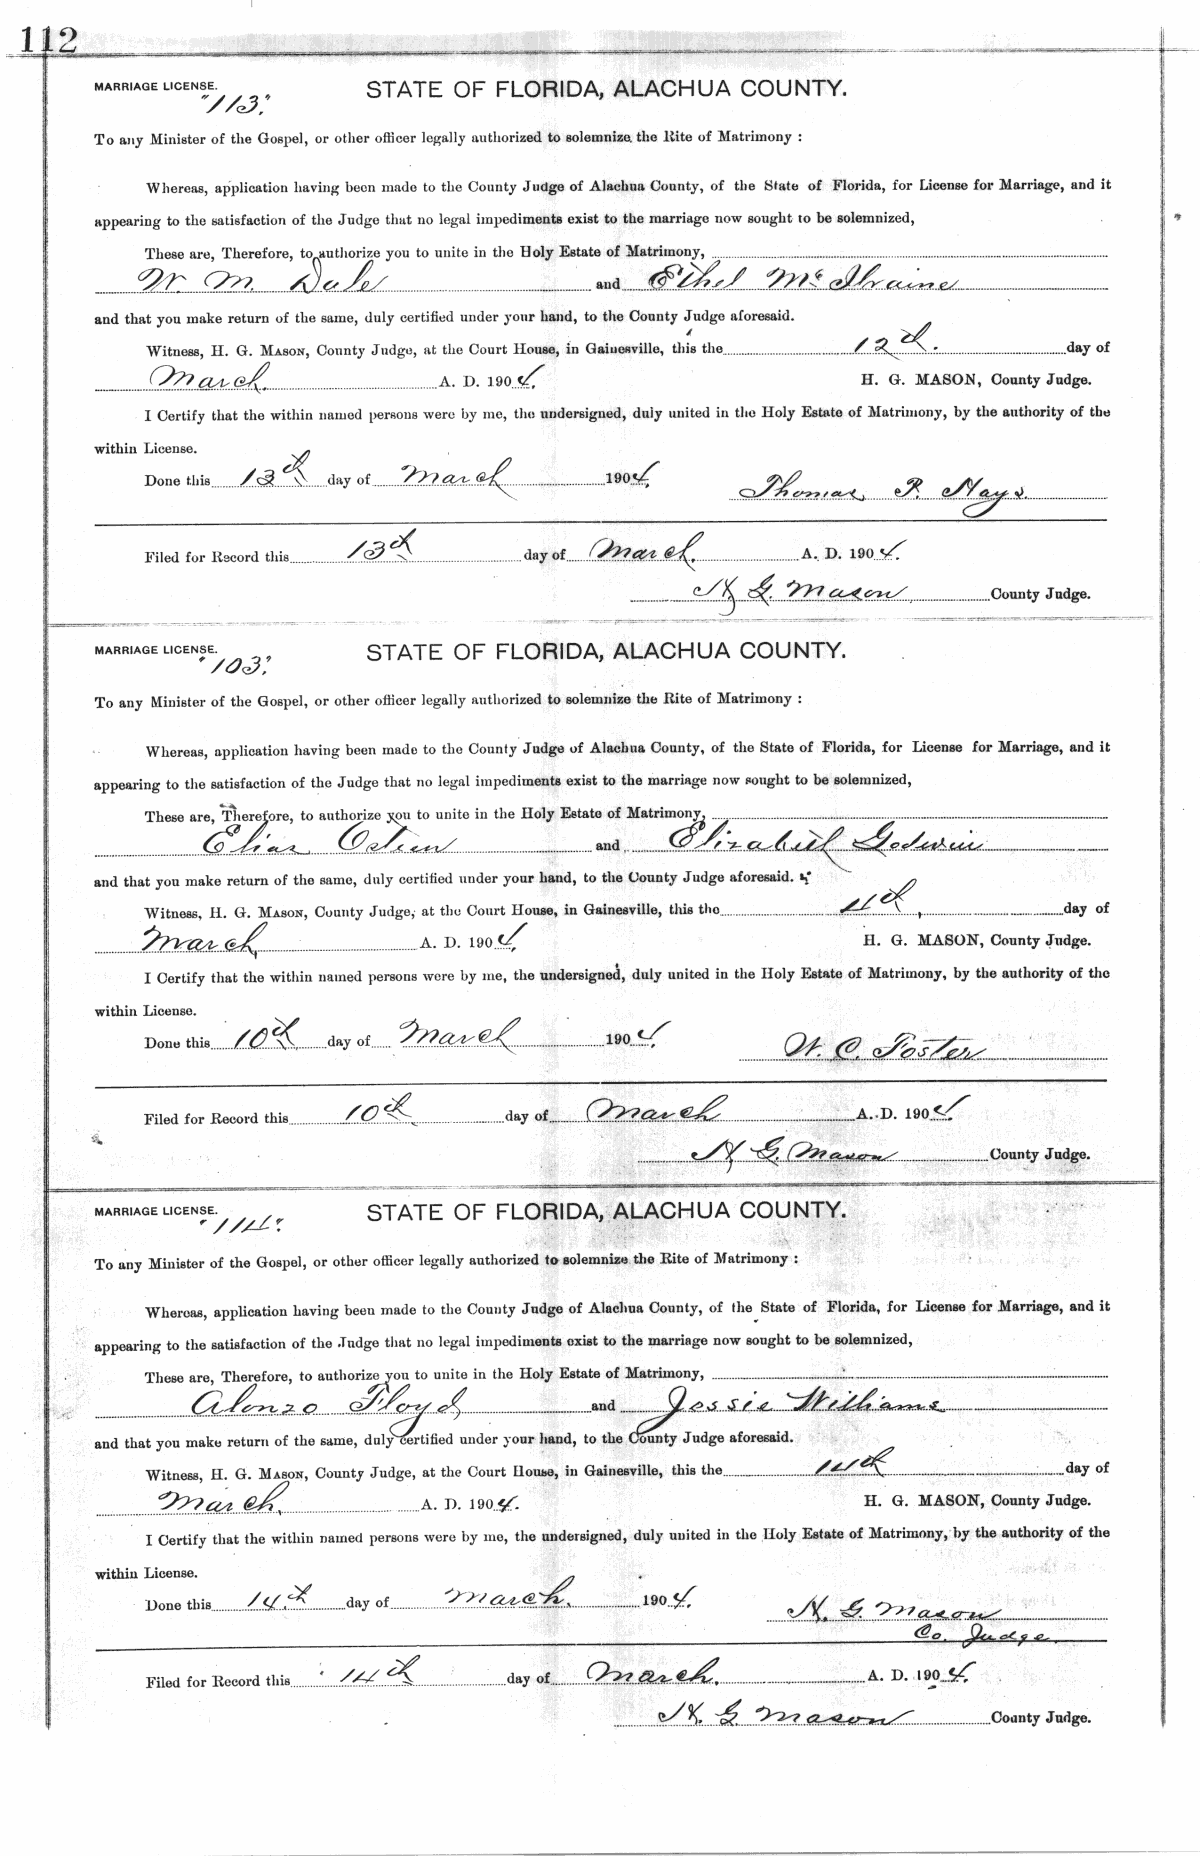 112
MARRIAGE LICENSE. STATE OF FLORIDA, ALACHUA COUNTY.
"113."
To any Minister of the Gospel, or other officer legally authorized to solemnize the Rite of Matrimony :
Whereas, application having been made to the County Judge of Alachua County, of the State of Florida, for License for Marriage, and it
appearing to the satisfaction of the Judge that no legal impediments exist to the marriage now sought to be solemnized,
These are, Therefore, to authorize you to unite in the Holy Estate of Matrimony,
W. M. Dale and Ethel McIlvaine
and that you make return of the same, duly certified under your hand, to the County Judge aforesaid.
Witness, H. G. MASON, County Judge, at the Court House, in Gainesville, this the 12th. day of
March. A. D. 1904. H. G. MASON, County Judge.
I Certify that the within named persons were by me, the undersigned, duly united in the Holy Estate of Matrimony, by the authority of the
within License.
Done this 13th day of March 1904.
Thomas P. Hays.
Filed for Record this 13th day of March. A. D. 1904.
H. G. Mason County Judge.
MARRIAGE LICENSE. STATE OF FLORIDA, ALACHUA COUNTY.
"103."
To any Minister of the Gospel, or other officer legally authorized to solemnize the Rite of Matrimony :
Whereas, application having been made to the County Judge of Alachua County, of the State of Florida, for License for Marriage, and it
appearing to the satisfaction of the Judge that no legal impediments exist to the marriage now sought to be solemnized,
These are, Therefore, to authorize you to unite in the Holy Estate of Matrimony,
Elias and Elizabeth Godwin
and that you make return of the same, duly certified under your hand, to the County Judge aforesaid.
Witness, H. G. MASON, County Judge, at the Court House, in Gainesville, this the 4th, day of
March, A. D. 1904. H. G. MASON, County Judge.
I Certify that the within named persons were by me, the undersigned, duly united in the Holy Estate of Matrimony, by the authority of the
within License.
Done this 10th day of March 1904.
W. C. Foster
Filed for Record this 10th day of March A. D. 1904.
H. G. Mason County Judge.
MARRIAGE LICENSE. STATE OF FLORIDA, ALACHUA COUNTY.
"114."
To any Minister of the Gospel, or other officer legally authorized to solemnize the Rite of Matrimony :
Whereas, application having been made to the County Judge of Alachua County, of the State of Florida, for License for Marriage, and it
appearing to the satisfaction of the Judge that no legal impediments exist to the marriage now sought to be solemnized,
These are, Therefore, to authorize you to unite in the Holy Estate of Matrimony,
Alonzo Floyd and Jessie Williams
and that you make return of the same, duly certified under your hand, to the County Judge aforesaid.
Witness, H. G. MASON, County Judge, at the Court House, in Gainesville, this the 14th day of
March. A. D. 1904. H. G. MASON, County Judge.
I Certify that the within named persons were by me, the undersigned, duly united in the Holy Estate of Matrimony, by the authority of the
within License.
Done this 14th day of March. 1904.
H. G. Mason
Co. Judge
Filed for Record this 14th day of March. A. D. 1904.
H. G. Mason County Judge.